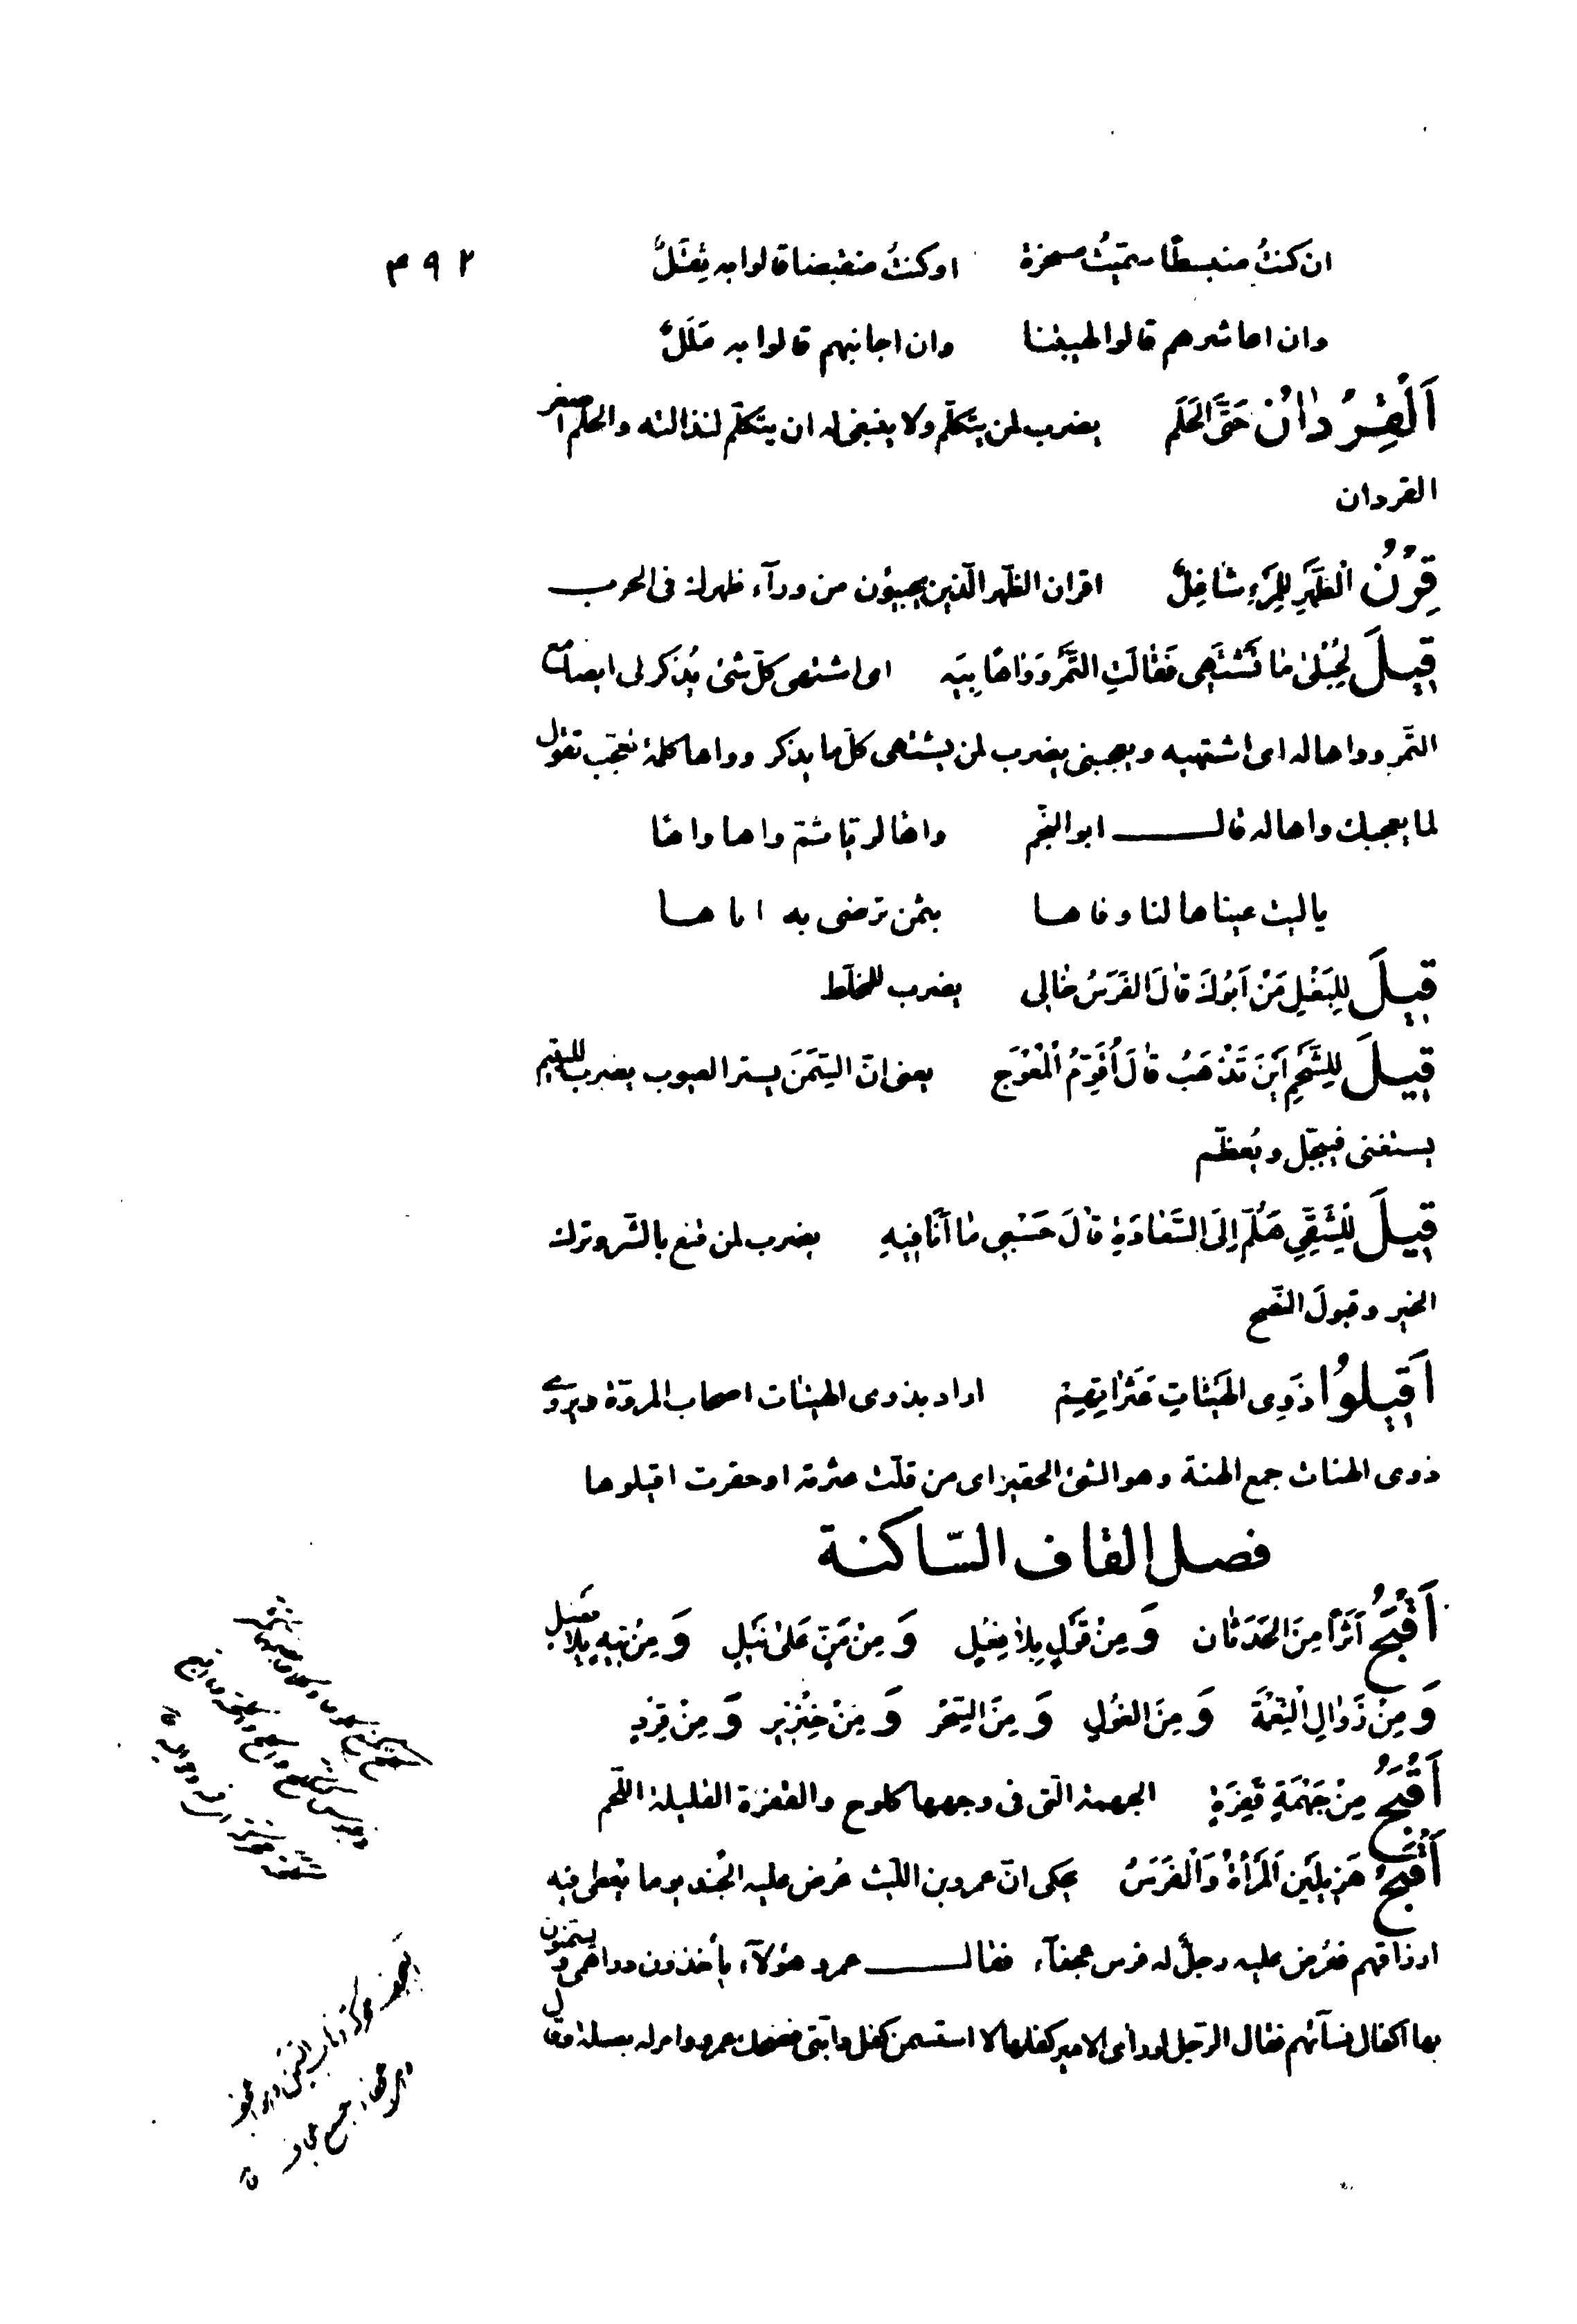 ان كنتُ منبسطًا سمّيتُ مسخرة او كنتُ منقبضا قالوا به ثِقَلٌ
٤٩٢
وان اعاشرهم قالوا لهيبتنا وان اجانبهم قالوا به مَلَلٌ
اَلْقِرْدٰانُ حَتَّى الْحَلَمِ يضرب لمن يتكلّم ولا ينبغى له ان يتكلّم لنذالته والحلم اصغر
القردان
قِرْنُ الْظَّهْرِ لِلْمَرْءِ شٰاغِلٌ اقران الظّهر الّذين يجيئون من ورآء ظهرك فى الحرب
قِيلَ لِحُبْلىٰ مٰا تَشْتَهِى فَقٰالَتِ التَّمْرُ وَوٰاهًا بِيَه اى اشتهى كلّ شئ يُذكر لى ايضا مع
التّمر وواها له اى اشتهيه ويعجبنى يضرب لمن يشتهى كلّ ما يذكر وواها كلمة تعجّب تقول
لما يعجبك واها له قال ابو النّجم واهًا لريّا ثمّ واها واهًا
يا ليت عيناها لنا وفاها بثمن نرضى به اباها
قِيلَ لِلْبَغْلِ مَنْ اَبُوكَ قٰالَ الْفَرَسُ خٰالِى يضرب للمخلّط
قِيلَ لِلشَّحْمِ اَيْنَ تَذْهَبُ قٰالَ اُقَوِّمُ الْمُعْوَجَّ يعنى انّ السِّمَنَ يستر العيوب يضرب للّئيم
يستغنى فيبجّل ويُعظّم
قِيلَ لِلشَّقِىِّ هَلُمَّ اِلَى السَّعٰادَةِ قٰالَ حَسْبِى مٰا اَنَا فِيهِ يضرب لمن قنع بالشّر وترك
الخير وقبولَ النّصح
اَقِيلُوا ذَوِى الْهَيْئٰاتِ عَثَرٰاتِهِمْ اراد بذوى الهيئات اصحاب المروّة ويروى
ذوى الهنات جمع الهنة وهو الشئ الحقير اى من قلّت عثرته او حقرت اقيلوها
فصل القاف السّاكنة
اَقْبَحُ اَثَرًا مِنَ الْحَدَثٰانِ وَ مِنْ قَوْلٍ بِلاٰ فِعْلٍ وَ مِنْ مَنٍّ عَلىٰ نَيْلٍ وَ مِنْ تِيهٍ بِلاٰ فَضْلٍ
وَ مِنْ زَوٰالِ النِّعْمَةِ وَ مِنَ الْغُولِ وَ مِنَ السِّحْرِ وَ مِنْ خِنْزِيرٍ وَ مِنْ قِرْدٍ
اَقْبَحُ مِنْ جَهْمَةٍ قَفِرَةٍ الجهمة الّتى فى وجهها كلوح والقفرة القليلة اللّحم
اَقْبَحُ هَزِيلَيْنِ الْمَرْأَةُ وَالْفَرَسُ يحكى انّ عمرو بن اللّيث عُرض عليه الجُند يوما يُعطى فيه
ارزاقهم فعُرض عليه رجلٌ له فرس عجفآء فقال عمرو هؤلآء يأخذون دراهمى ويسمنون
بها اكفال نسآئهم فقال الرّجل لو رأى الامير كفلها لا استسمن كفل دابّتى فضحك عمرو وامر له بصلة وقال